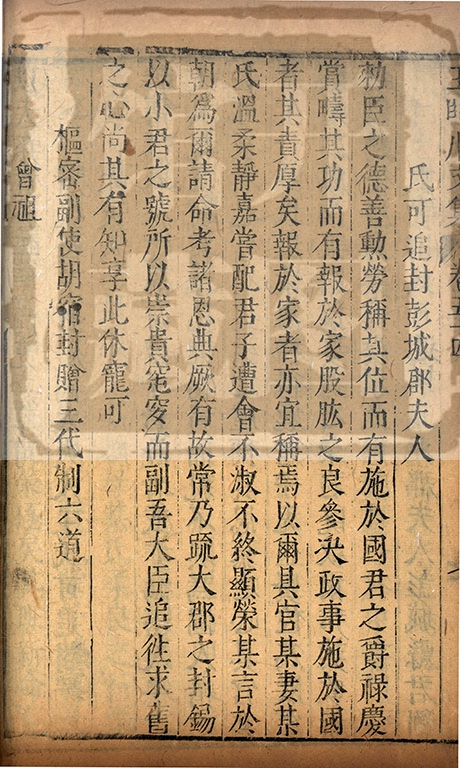 氏可追封彭城郡夫人
勑臣之德善勲勞稱其位而有施於國君之爵祿慶
賞疇其功而有報於家股肱之良參决政事施於國
者其責厚矣報於家者亦宜稱焉以爾具官某妻某
氏溫柔靜嘉嘗配君子遭會不淑不終顯榮某言於
朝為爾請命考諸恩典厥有故常乃䟽大郡之封錫
以小君之號所以崇貴窀穸而副吾大臣追徃求舊
之心尚其有知享此休寵可
樞密副使胡宿封贈三代制六道
曾祖